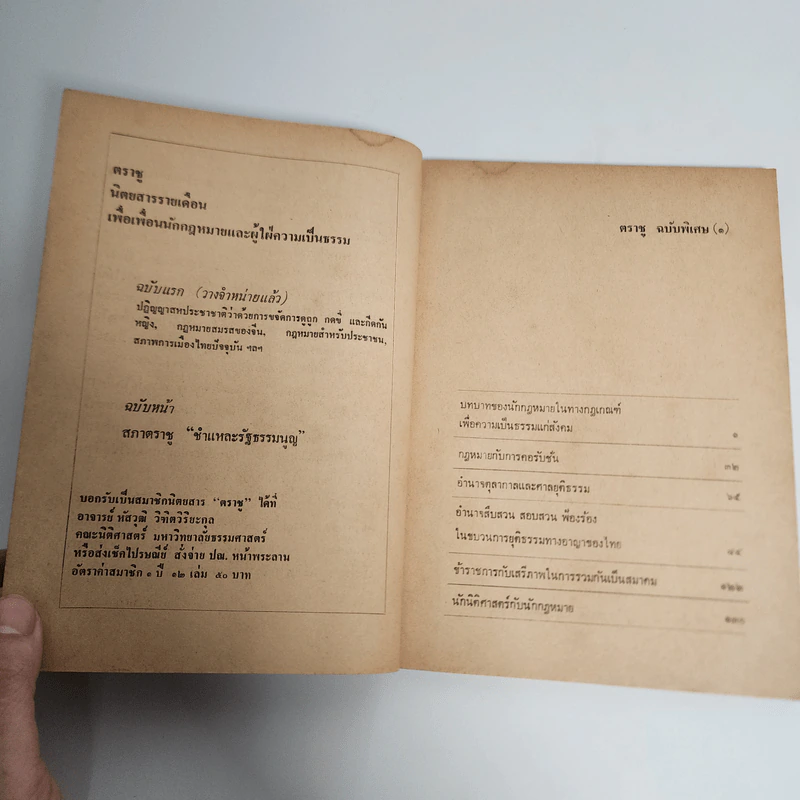 ตราชู
นิตยสารรายเดือน
เพื่อเพื่อนนักกฎหมายและผู้ใฝ่ความเป็นธรรม
ฉบับแรก (วางจำหน่ายแล้ว)
ปฏิญญาสหประชาชาติว่าด้วยการขจัดการดูถูก กดขี่ และกีดกัน
หญิง, กฎหมายสมรสของจีน, กฎหมายสำหรับประชาชน,
สภาพการเมืองไทยปัจจุบัน ฯลฯ
ฉบับหน้า
สภาตราชู “ชำแหละรัฐธรรมนูญ”
บอกรับเป็นสมาชิกนิตยสาร “ตราชู” ได้ที่
อาจารย์ หัสวุฒิ วิฑิตวิริยะกุล
คณะนิติศาสตร์ มหาวิทยาลัยธรรมศาสตร์
หรือส่งเช็คไปรษณีย์ สั่งจ่าย ปณ. หน้าพระลาน
อัตราค่าสมาชิก ๑ ปี ๑๒ เล่ม ๕๐ บาท
ตราชู ฉบับพิเศษ (๑)
บทบาทของนักกฎหมายในทางกฎเกณฑ์
เพื่อความเป็นธรรมแก่สังคม ๑
กฎหมายกับการคอรัปชั่น ๓๒
อำนาจตุลาการและศาลยุติธรรม ๖๕
อำนาจสืบสวน สอบสวน ฟ้องร้อง
ในขบวนการยุติธรรมทางอาญาของไทย
ข้าราชการกับเสรีภาพในการรวมกันเป็นสมาคม ๑๒๒
นักนิติศาสตร์กับนักกฎหมาย